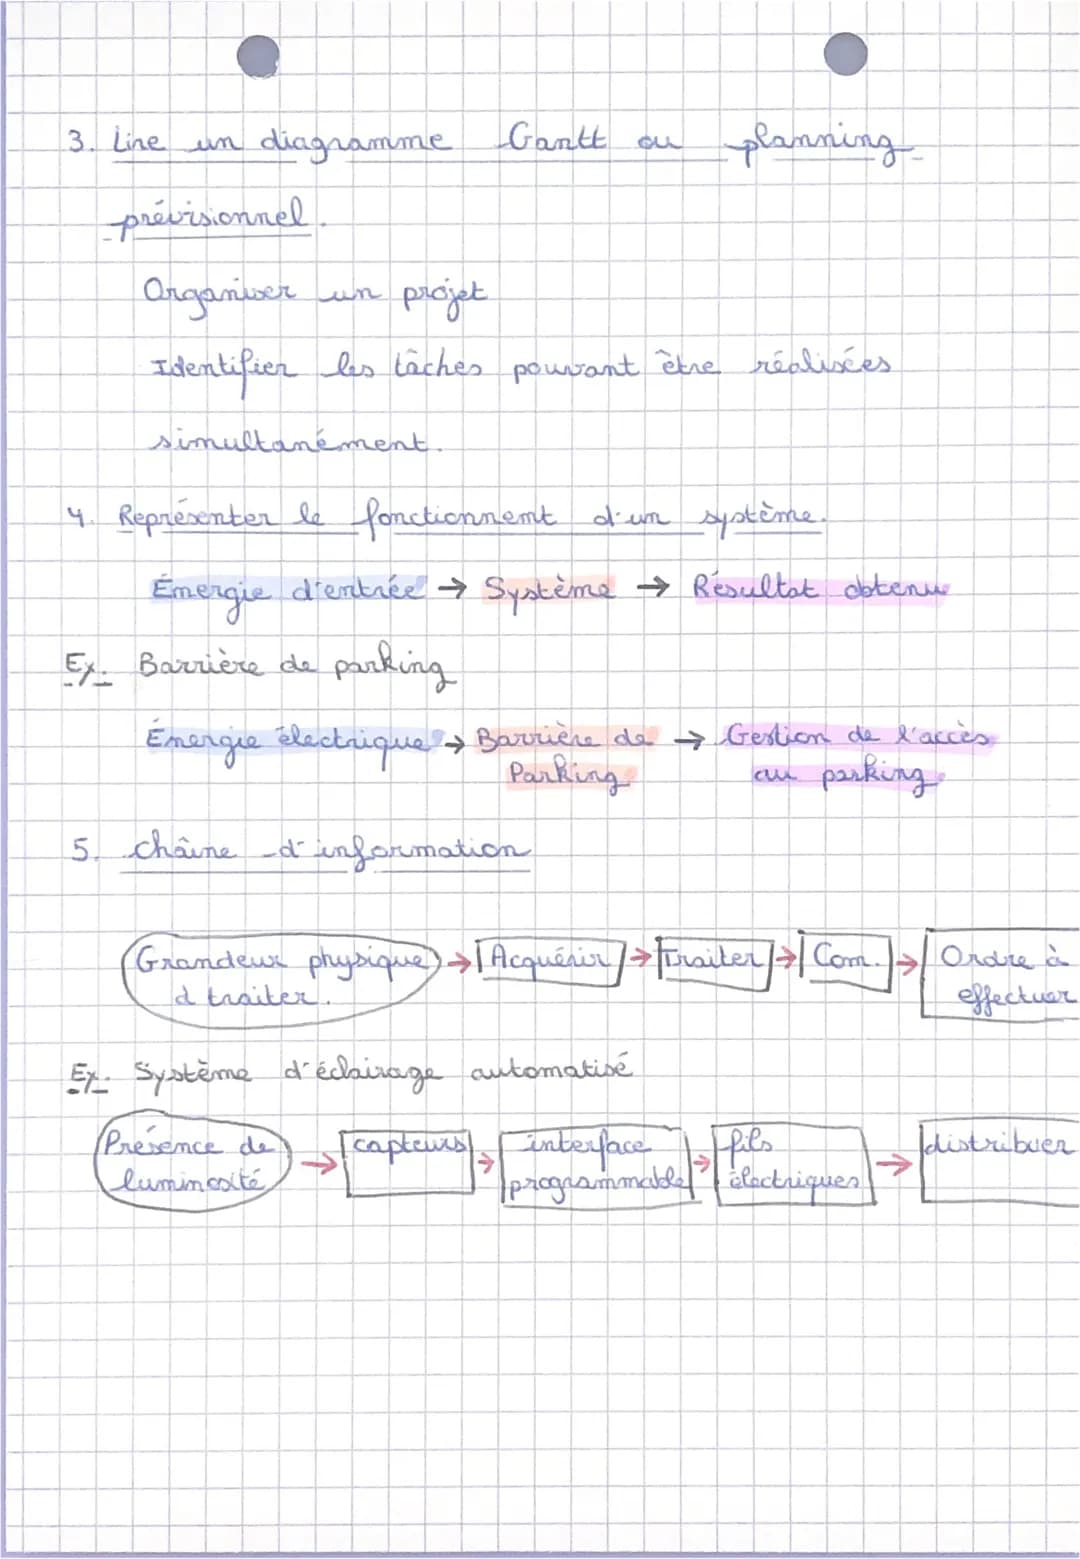 3. Lire un diagramme Gantt ou planning
prévisionnel.
Organiser un projet
Identifier les tâches pouvant être réalisées
simultanément.
4. Représenter le fonctionnemt d'un système.
Énergie d'entrée → Système → Résultat obtenu
Ex. Barrière de parking
Énergie électrique → Barrière de → Gestion de l'accès
Parking au parking
5. chaîne d'information
Grandeur physique → Acquérir → Traiter → Com. → Ordre à
d traiter. effectuer
Ex. Système d'éclairage automatisé
Présence de → capteurs → interface → fils → distribuer
luminosité programmable électriques